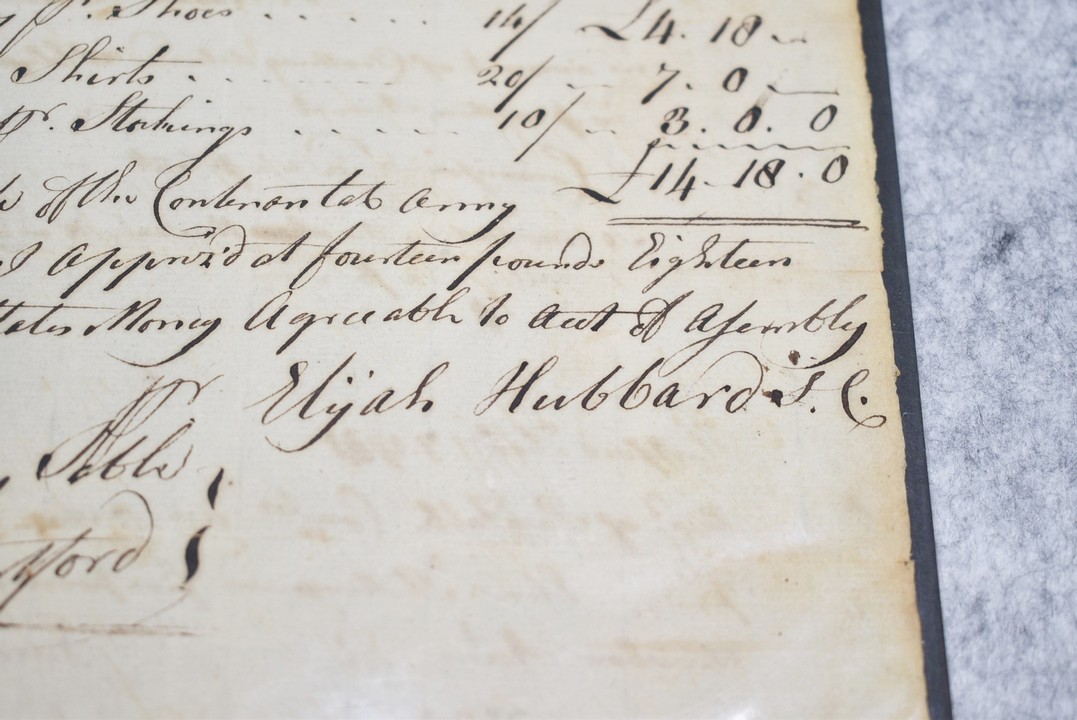 pr. Shoes . . . . . . 14/ £4. 18 ..
Shirts . . . . . . . 20/ .. 7. 0 ..
pr. Stockings . . . . . 10/ .. 3. 0. 0
£14. 18. 0
of the Continantal army
appriz'd at fourteen pounds Eighteen
Money Agreeable to act of Asembly
pr Elijah Hubbard S. C.
Table